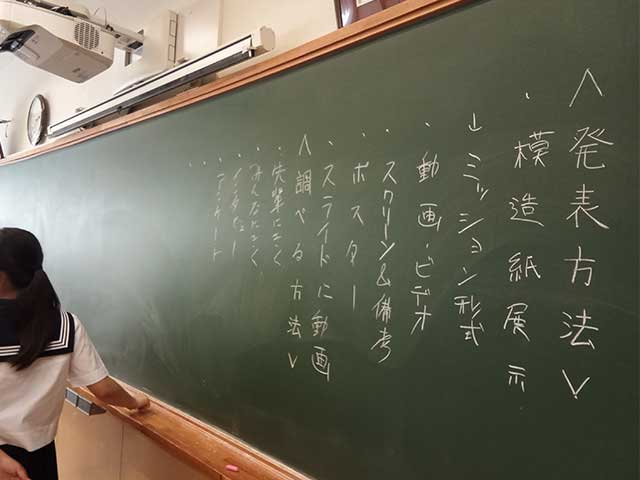 ＜発表方法＞
・模造紙展示
→ミッション形式
・動画・ビデオ
・スクリーン&備考
・ポスター
・スライドに動画
＜調べる方法＞
・先輩にきく
・みんなにきく
・インタビュー
・アンケート